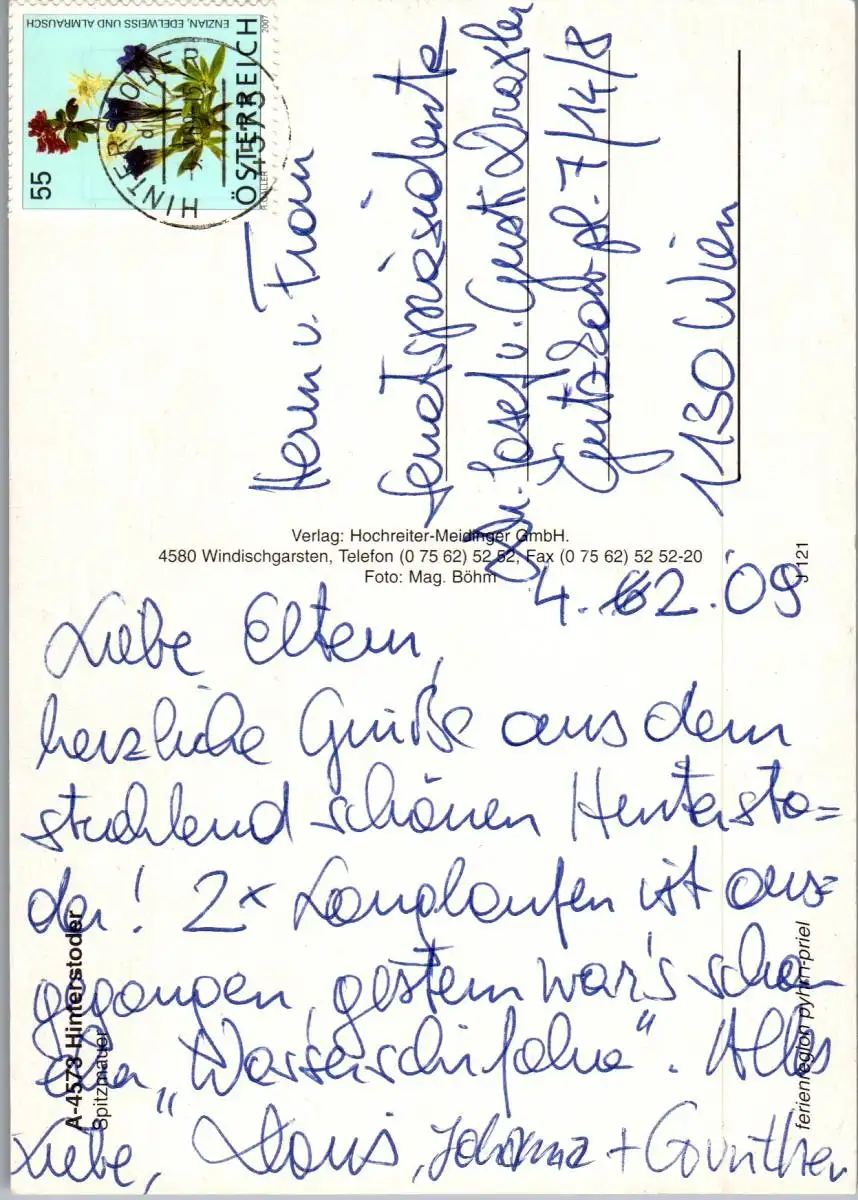 ENZIAN, EDELWEISS UND ALMRAUSCH
2007
55
ÖSTERREICH
HINTERSTODER
Herrn u. Frau
Senatspräsidente
Dr. Josef u. Gusti Draxler
1130 Wien
Verlag: Hochreiter-Meidinger GmbH.
4580 Windischgarsten, Telefon (0 75 62) 52 52, Fax (0 75 62) 52 52-20
Foto: Mag. Böhm
J 121
4. 2. '09
Liebe Eltern,
herzliche Grüße aus dem
strahlend schönen Hintersto=
der! 2x Langlaufen ist aus=
gegangen, gestern war's schon
eher „Wasserschifahn“. Alles
Liebe, Doris, Johanna + Gounther
A-4573 Hinterstoder
Spitzmauer
ferienregion pyhrn-priel